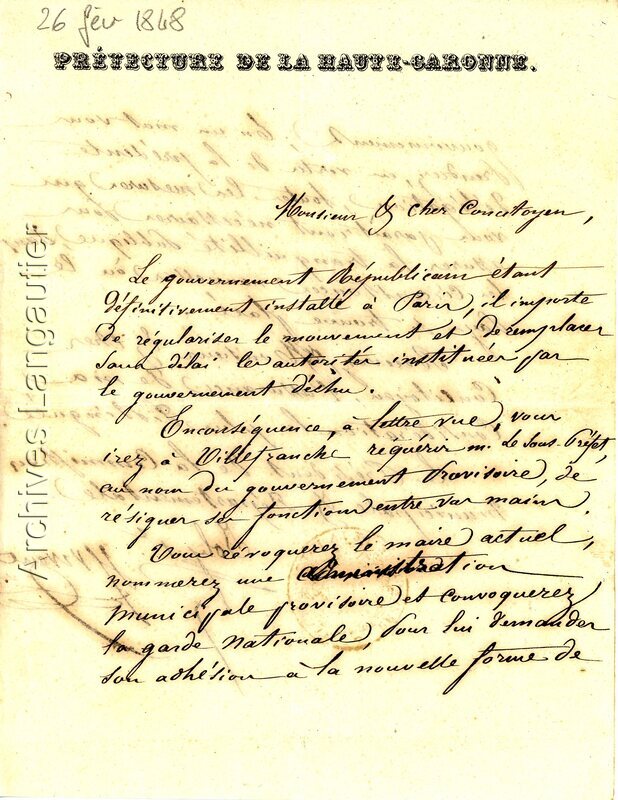 26 fév 1848
PRÉFECTURE DE LA HAUTE-GARONNE.
Monsieur & cher Concitoyen,
Le gouvernement Républicain étant
définitivement installé à Paris, il importe
de régulariser le mouvement et de remplacer
sans délai les autorités instituées par
le gouvernement déchu.
En conséquence, à lettre vue, vous
irez à Villefranche requérir m. le Sous-Préfet,
au nom du gouvernement Provisoire, de
résigner ses fonctions entre vos mains.
Vous révoquerez le maire actuel,
nommerez une administration
municipale provisoire et convoquerez
la garde nationale, pour lui demander
son adhésion à la nouvelle forme de
Archives Langautier